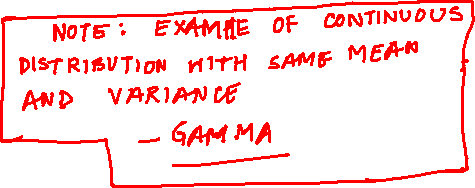 NOTE: EXAMPLE OF CONTINUOUS
DISTRIBUTION WITH SAME MEAN
AND VARIANCE
- GAMMA